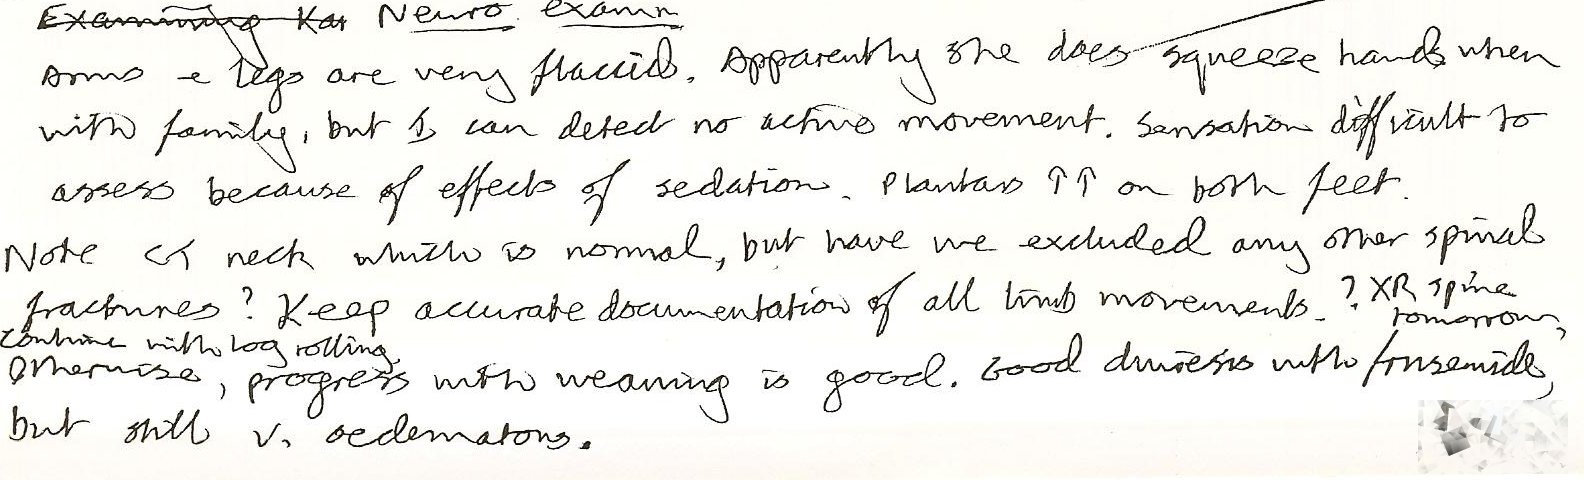 Examining Kar Neuro examn
Arms & legs are very flaccid. Apparently she does squeeze hands when
with family, but I can detect no active movement. Sensation difficult to
assess because of effects of sedation. Plantars ↑↑ on both feet.
Note CT neck which is normal, but have we excluded any other spinal
fractures? Keep accurate documentation of all limb movements. ? XR spine
tomorrow,
continue with log rolling.
Otherwise, progress with weaning is good. Good diuresis with frusemide,
but still v. oedematous.